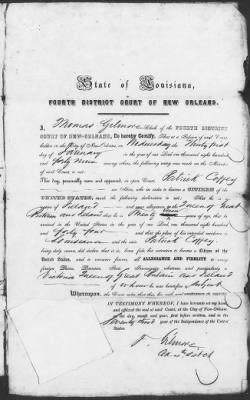 State of Louisiana,
FOURTH DISTRICT COURT OF NEW ORLEANS.
I, Thomas Gilmore Clerk of the FOURTH DISTRICT
COURT OF NEW-ORLEANS, Do hereby Certify, That at a Session of said Court
holden in the City of New-Orleans, on Wednesday the Thirty first
day of January in the year of our Lord one thousand eight hundred
and forty nine among others, the following entry was made on the Minutes
of said Court, to wit:
This day, personally came and appeared, in open Court, Patrick Coffey
an Alien, who in order to become a CITIZEN of the
UNITED STATES,
day of Ireland
Britain and Ireland that he is Thirty years of age, that he
arrived in the United States in the year of our Lord one thousand eight hundred
and forty four and that the place of his intended residence is
Louisiana and the said Patrick Coffey
being duly sworn, did declare that it is, bona fide his intention to become a Citizen of the
United States, and to renounce forever all ALLEGIANCE AND FIDELITY to every
foreign Prince, Potentate, State or Sovereignty whatever and particularly to
Victoria Queen of Great Britain and Ireland
of whom he was heretofore a subject
Whereupon,
IN TESTIMONY WHEREOF, I have hereunto set my hand
and affixed the seal of said Court, at the City of New-Orleans,
the day, month and year, first before written, and in the
Seventy third year of the Independence of the United
States.
Gilmore